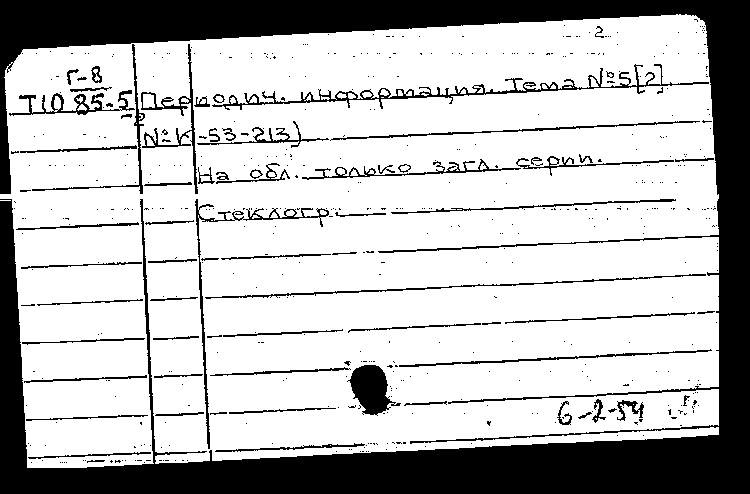 2
Г-8
Т10 85-5 Периодич. информация. Тема №5[2].
-2
№К-53-213)
На обл. только загл. серии.
Стеклогр.
6-2-54